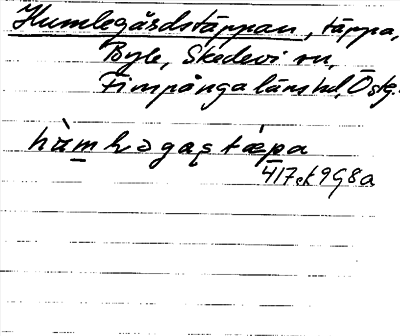 Humlegårdstäppan, täppa,
Byle, Skedevi sn,
Finspånga läns hd, Östg.
hùmləgaʂtæpa